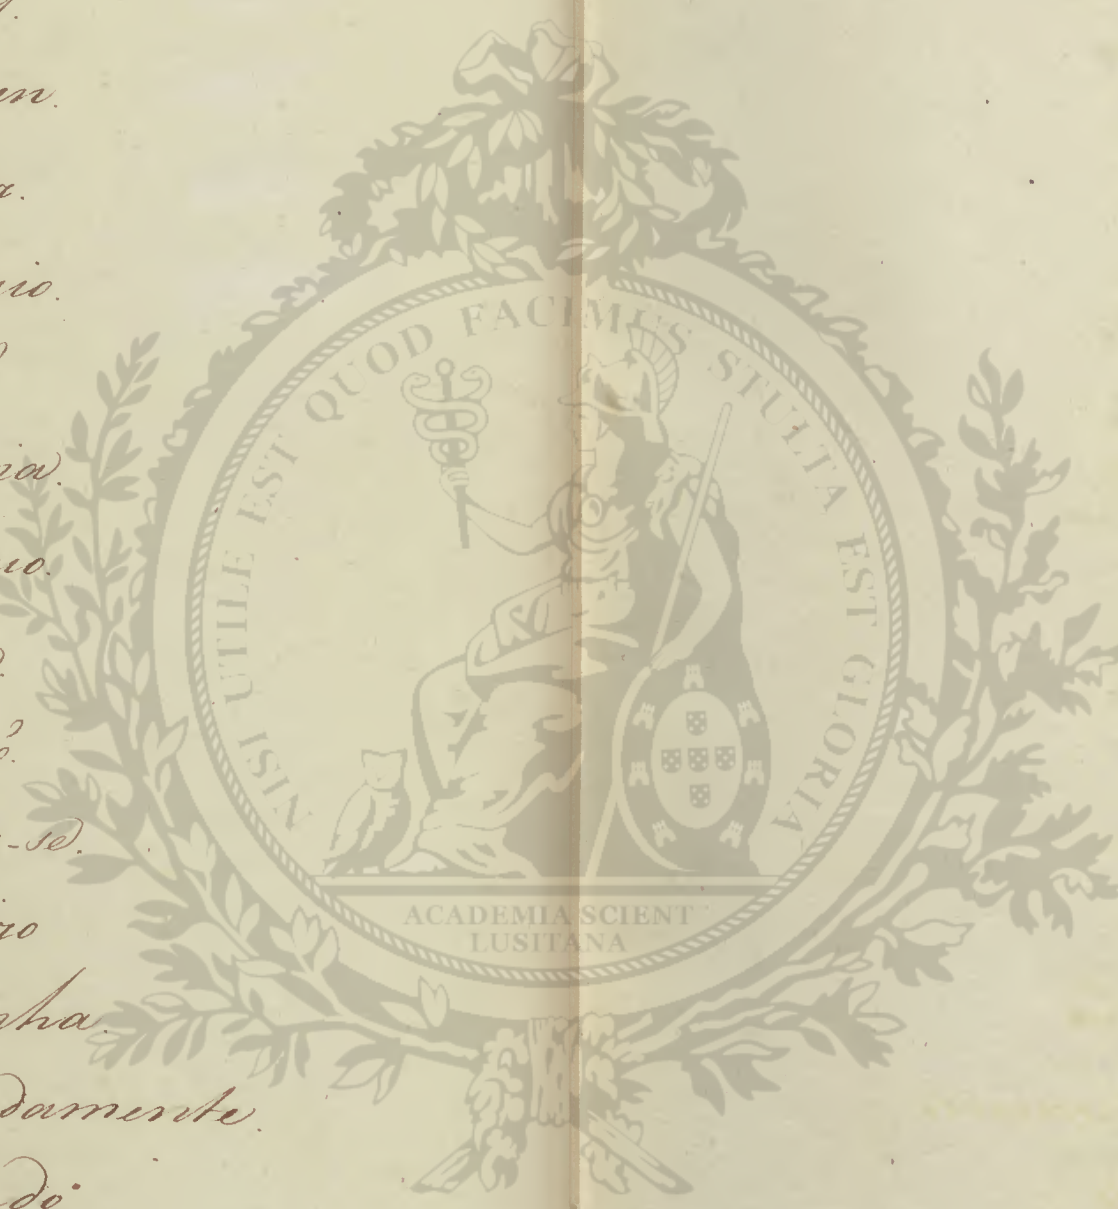 en.
a.
io.
na.
no.
-se.
ro
nha.
damente.
do
NISI UTILE EST QUOD FACIMUS STULTA EST GLORIA
ACADEMIA SCIENT
LUSITANA